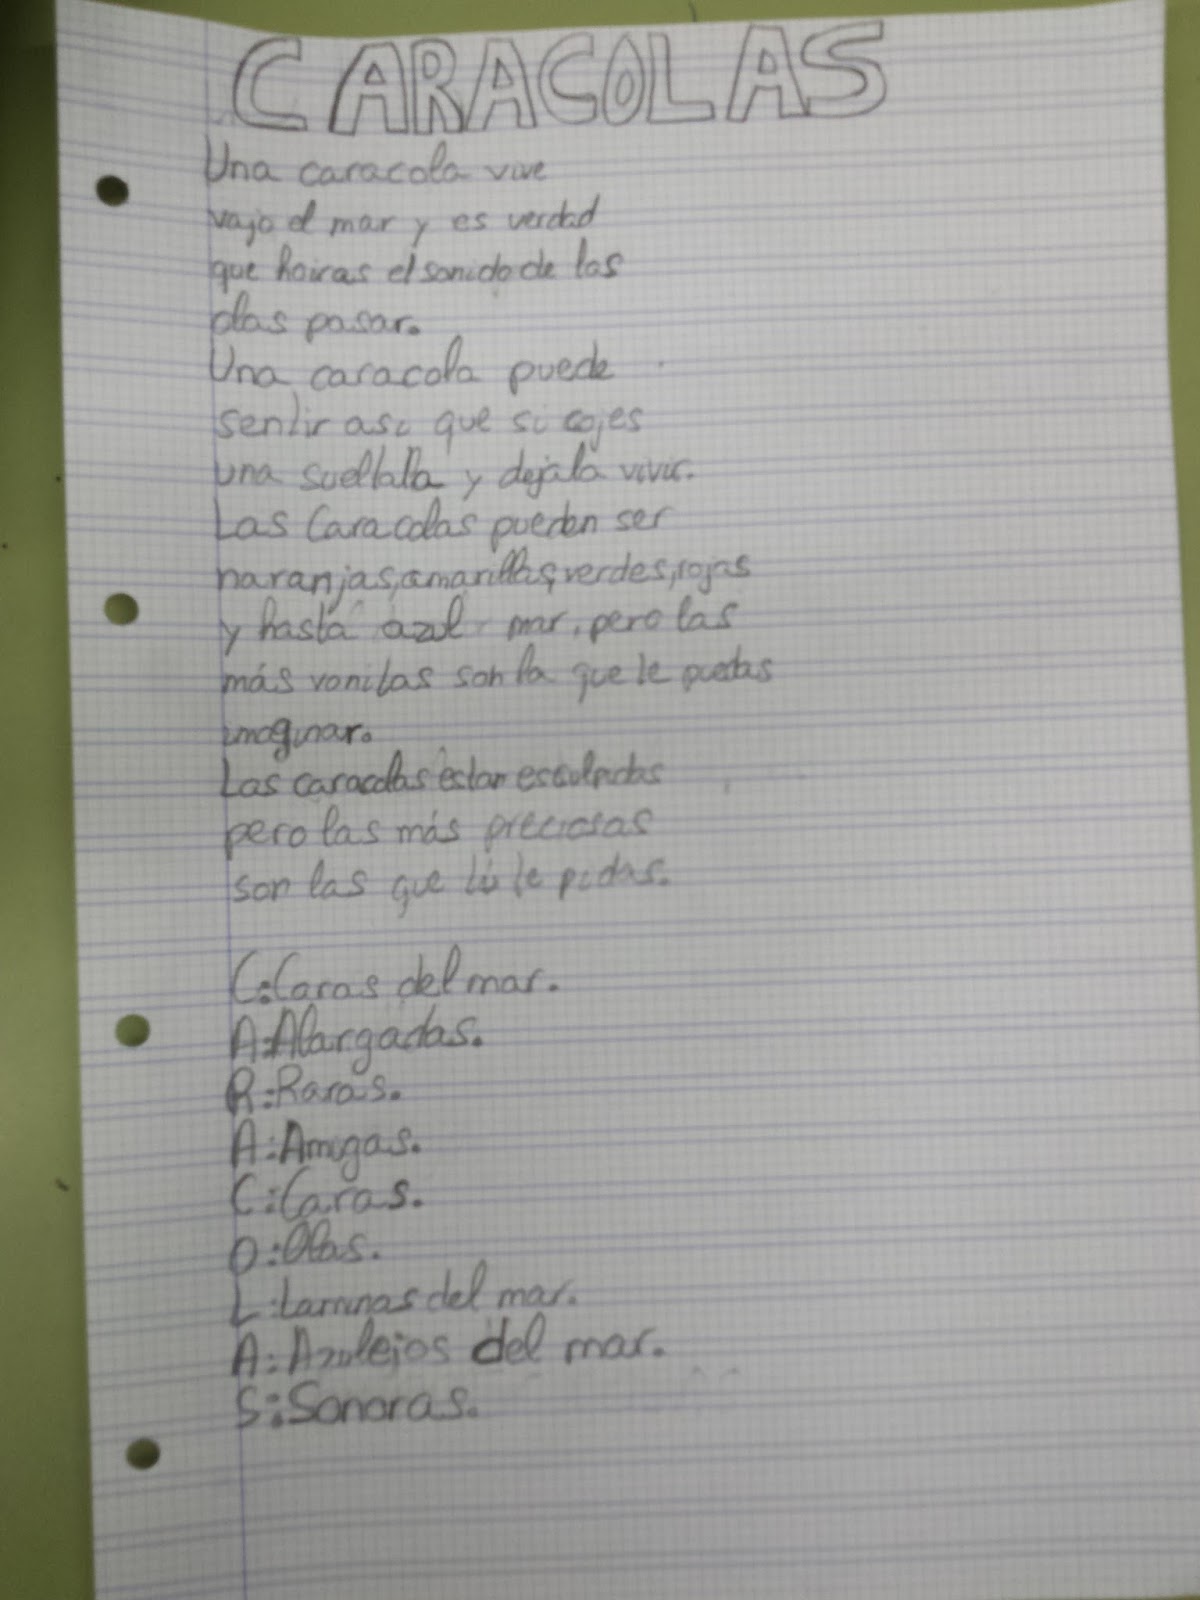 CARACOLAS
Una caracola vive
vajo el mar y es verdad
que hoiras el sonido de las
olas pasar.
Una caracola puede
sentir asi que si cojes
una sueltalla y dejala vivir.
Las Caracolas pueden ser
naranjas, amarillas, verdes, rojas
y hasta azul mar, pero las
más vonitas son la que te puedas
imaginar.
Las caracolas estan esculpidas
pero las más preciosas
son las que tú te pidas.
C: Caras del mar.
A: Alargadas.
R: Raras.
A: Amigas.
C: Caras.
O: Olas.
L: Laminas del mar.
A: Azulejos del mar.
S: Sonoras.